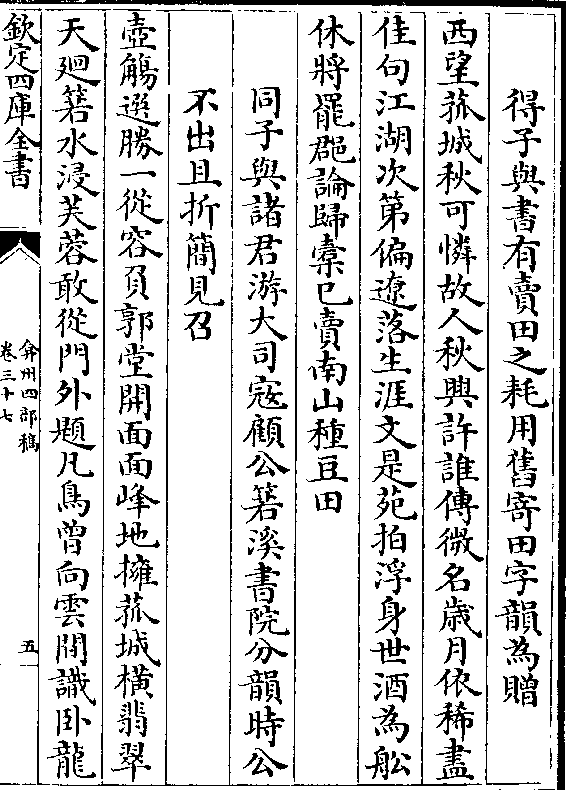 得子與書有賣田之耗用舊寄田字韻為贈
西望菰城秋可憐故人秋興許誰傳微名歳月依稀盡
佳句江湖次第偏遼落生涯文是苑拍浮身世酒為舩
休將罷郡論歸槖已賣南山種豆田
同子與諸君游大司寇顧公箬溪書院分韻時公
不出且折簡見召
壺觴選勝一從容負郭堂開面面峰地擁菰城横翡翠
天廻箬水浸芙蓉敢從門外題凡鳥曾向雲間識卧龍
欽定四庫全書
弇州四部稿
卷三十七
五